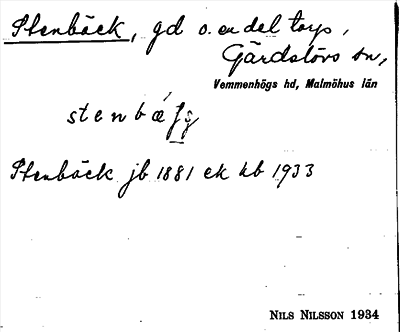 Stenbäck, gd o. en del torp,
Gärdslövs sn,
Vemmenhögs hd, Malmöhus län
stenbæ̀ʃg
Stenbäck jb 1881 ek kb 1933
NILS NILSSON 1934